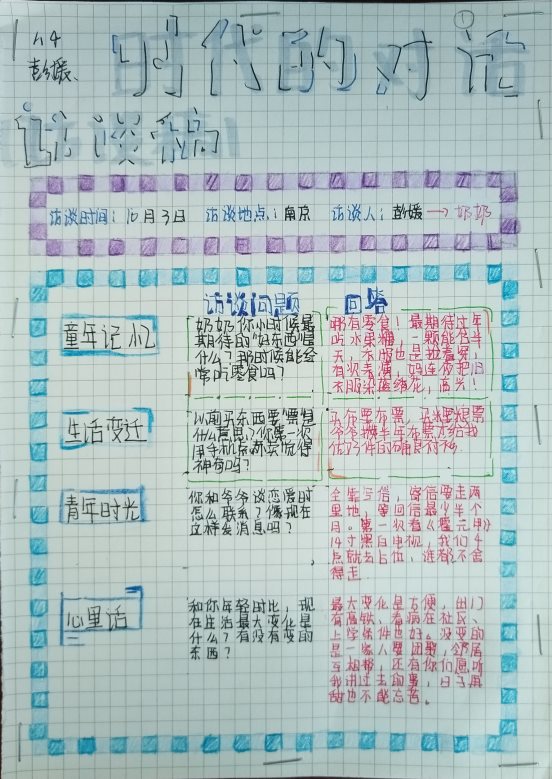 ①
1、4
彭媛、
时代的对话
访谈稿
访谈时间：10月3日 访谈地点：南京 访谈人：彭媛→奶奶
访谈问题
回答
童年记忆
奶奶你小时候最
期待的东西是
什么？那时候能经
常吃零食吗？
哪有零食！最期待过年
吃水果糖，一颗能含半
天，衣服也是
有次表演，妈连夜把旧
衣服染蓝绣花，高兴！
生活变迁
以前买东西要票是
什么意思？你第一次
用手机点外卖觉得
神奇吗？
买布要布票，买米要粮票
爷爷攒半年布票才给我
做了件的确良衬衫
青年时光
你和爷爷谈恋爱时
怎么联系？像现在
这样发消息吗？
全靠写信，寄信要走两
里地，等回信最少半个
月。第一次看《霍元甲》
14寸黑白电视，我们4
点就去占位，谁都不舍
得走
心里话
和你年轻时比，现
在生活最大变化是
什么？有没有变的
东西？
最大变化是方便，出门
有高铁、看病在社区、
上学条件也好。没变的
是一家人要团聚，邻居
互相帮，还有你们愿听
我讲过去的事，日子再
甜也不能忘苦。